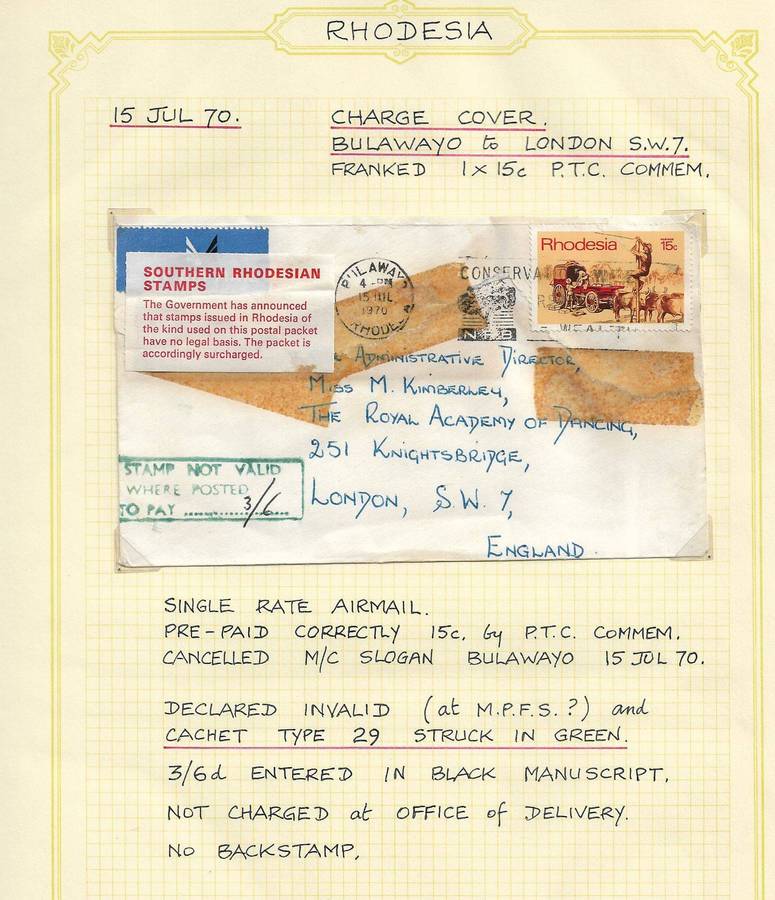 RHODESIA
15 JUL 70.
CHARGE COVER.
BULAWAYO to LONDON S.W.7.
FRANKED 1 x 15c P.T.C. COMMEM.
SOUTHERN RHODESIAN
STAMPS
The Government has announced
that stamps issued in Rhodesia of
the kind used on this postal packet
have no legal basis. The packet is
accordingly surcharged.
BULAWAYO
4 - PM
15 JUL
1970
RHODESIA
Rhodesia 15c
ADMINISTRATIVE DIRECTOR,
MISS M. KIMBERLEY,
THE ROYAL ACADEMY OF DANCING,
251 KNIGHTSBRIDGE,
LONDON, S.W. 7,
ENGLAND.
STAMP NOT VALID
WHERE POSTED
TO PAY ............ 3/6
SINGLE RATE AIRMAIL.
PRE-PAID CORRECTLY 15c. by P.T.C. COMMEM.
CANCELLED M/C SLOGAN BULAWAYO 15 JUL 70.
DECLARED INVALID (at M.P.F.S.?) and
CACHET TYPE 29 STRUCK IN GREEN.
3/6d ENTERED IN BLACK MANUSCRIPT.
NOT CHARGED at OFFICE of DELIVERY.
NO BACKSTAMP.